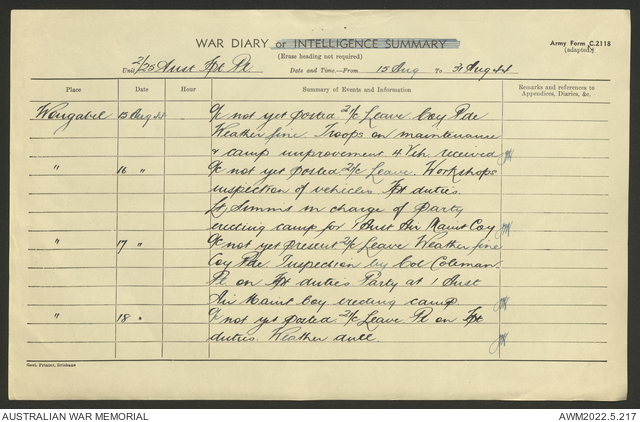 WAR DIARY or INTELLIGENCE SUMMARY
Army Form C.2118
(adapted)
(Erase heading not required)
Unit 2/25 Aust Tpt Pl Date and Time—From 15 Aug To 31 Aug 44
Place Date Hour Summary of Events and Information Remarks and references to Appendices, Diaries, &c.
Wongabel 15 Aug 44 O/c not yet posted. 2/c Leave Coy Pde
Weather fine. Troops on maintenance
& camp improvement 4 Veh. received
" 16 " O/c not yet posted 2/c Leave. Workshops
inspection of vehicles Tpt duties.
Lt Simms in charge of Party
erecting camp for 1 Aust Air Maint Coy
" 17 " O/c not yet present 2/c Leave Weather fine
Coy Pde Inspection by Col Coleman.
Pl on Tpt duties Party at 1 Aust
Air Maint Coy erecting camp
" 18 " O/c not yet posted 2/c Leave Pl on Tpt
duties. Weather dull.
Govt. Printer, Brisbane
AUSTRALIAN WAR MEMORIAL AWM2022.5.217